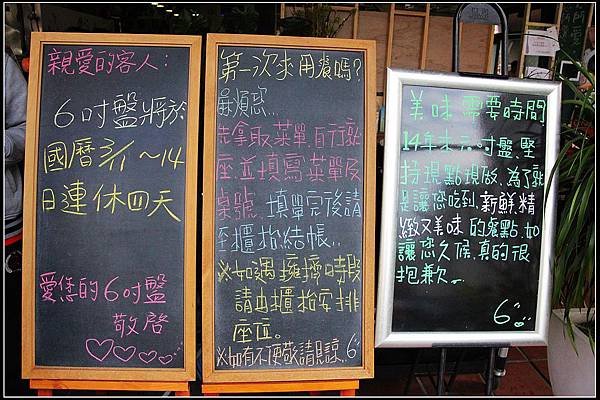 親愛的客人：
6吋盤將於
國曆3/1～14
日連休四天
愛您的6吋盤
敬啓
第一次來用餐嗎？
麻煩您...
先拿取菜單,自行就
座並填寫菜單及
桌號 填單完後請
至櫃抬結帳..
※如遇擁擠時段
請由櫃抬安排
座位。
※如有不便敬請見諒.. 6"
美味 需要時間
14年來六吋盤,堅
持現點現做,為了就
是讓您吃到 新鮮精
緻又美味 的餐點.如
讓您久候,真的很
抱歉...
6"